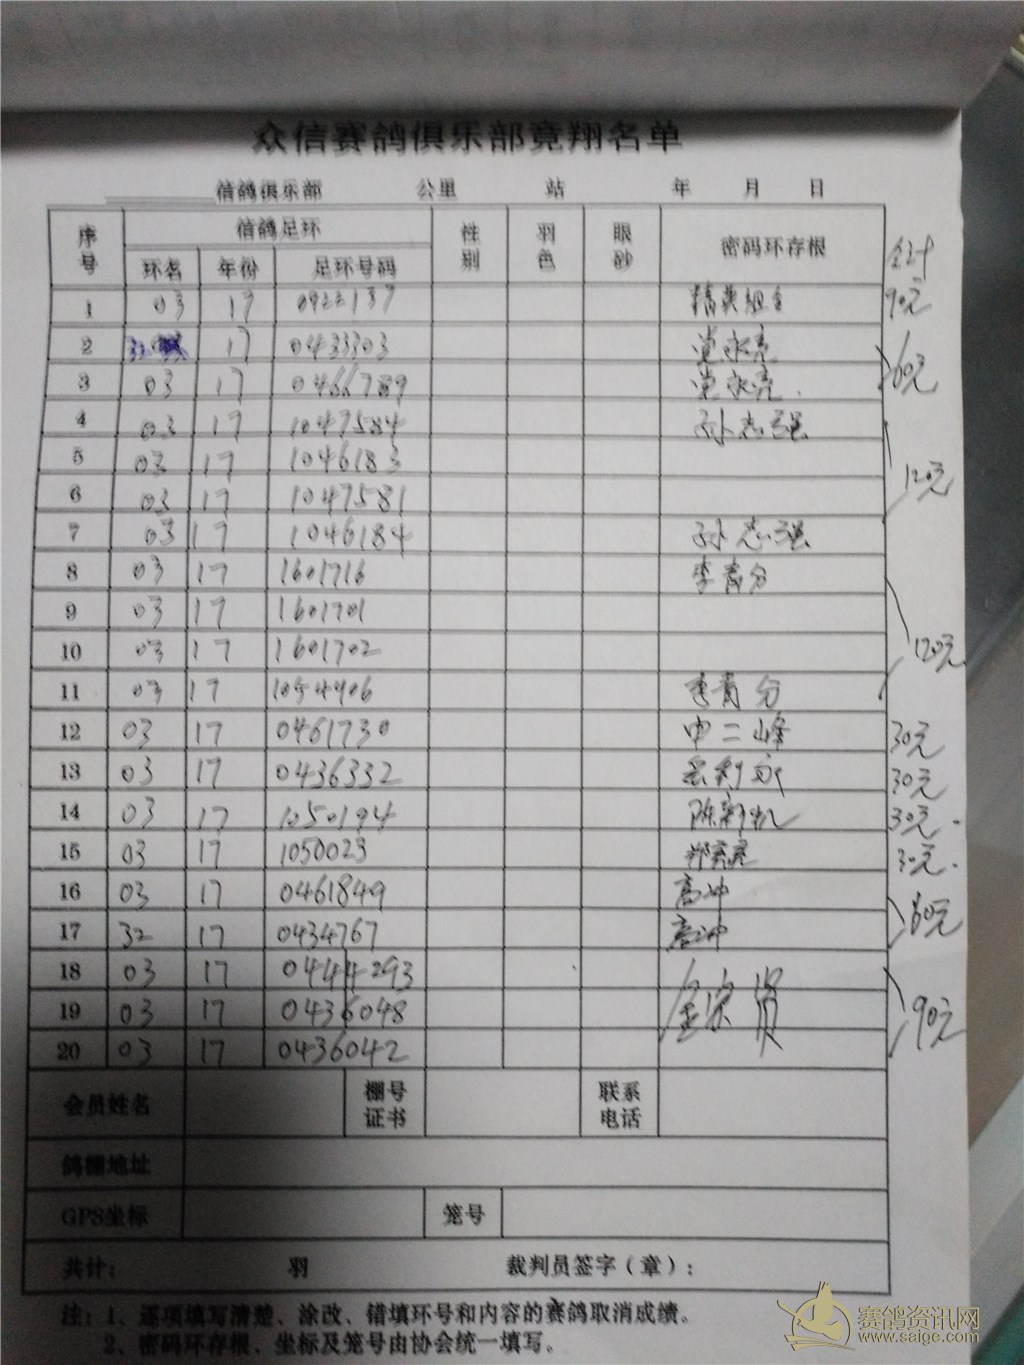 众信赛鸽俱乐部竞翔名单
信鸽俱乐部 公里 站 年 月 日
序号 信鸽足环 性别 羽色 眼砂 密码环存根 合计
环名 年份 足环号码
1 03 17 0922137 精英组合 90元
2 32 17 0433303 党永亮
3 03 17 0466789 党永亮. 60元
4 03 17 1047584 孙志强
5 03 17 1046183
6 03 17 1047581 120元
7 03 17 1046184 孙志强
8 03 17 1601716 李青分
9 03 17 1601701
10 03 17 1601702 120元
11 03 17 1054906 李青分
12 03 17 0461730 申二峰 30元
13 03 17 0436332 30元
14 03 17 1050194 陈新机 30元.
15 03 17 1050023 30元.
16 03 17 0461849 高冲
17 32 17 0434767 高冲 60元
18 03 17 0444293
19 03 17 0436048 90元
20 03 17 0436042
会员姓名 棚号证书 联系电话
鸽棚地址
GPS坐标 笼号
共计: 羽 裁判员签字(章):
注:1、逐项填写清楚、涂改、错填环号和内容的赛鸽取消成绩。
2、密码环存根、坐标及笼号由协会统一填写。
赛鸽资讯网
www.saige.com